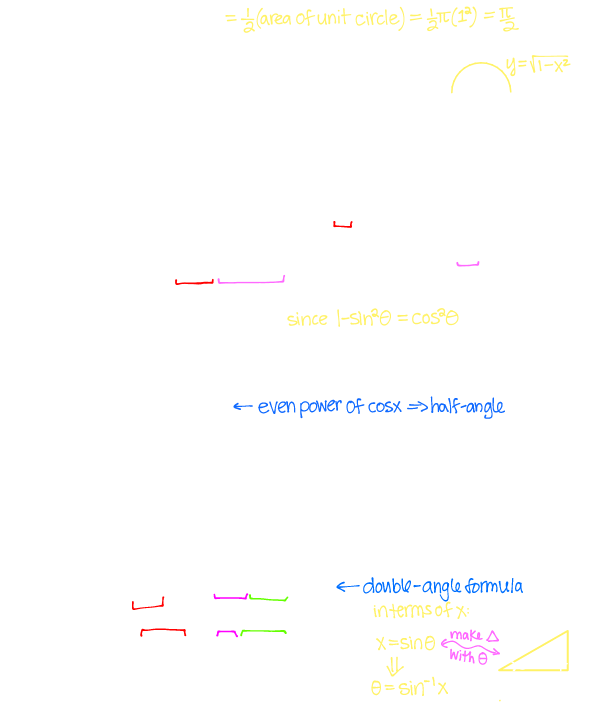 = 1/2 (area of unit circle) = 1/2 π(1²) = π/2
y = √1-x²
since 1-sin²θ = cos²θ
← even power of cosx ⇒ half-angle
← double-angle formula
in terms of x:
x = sinθ
make △
with θ
⇓
θ = sin⁻¹x